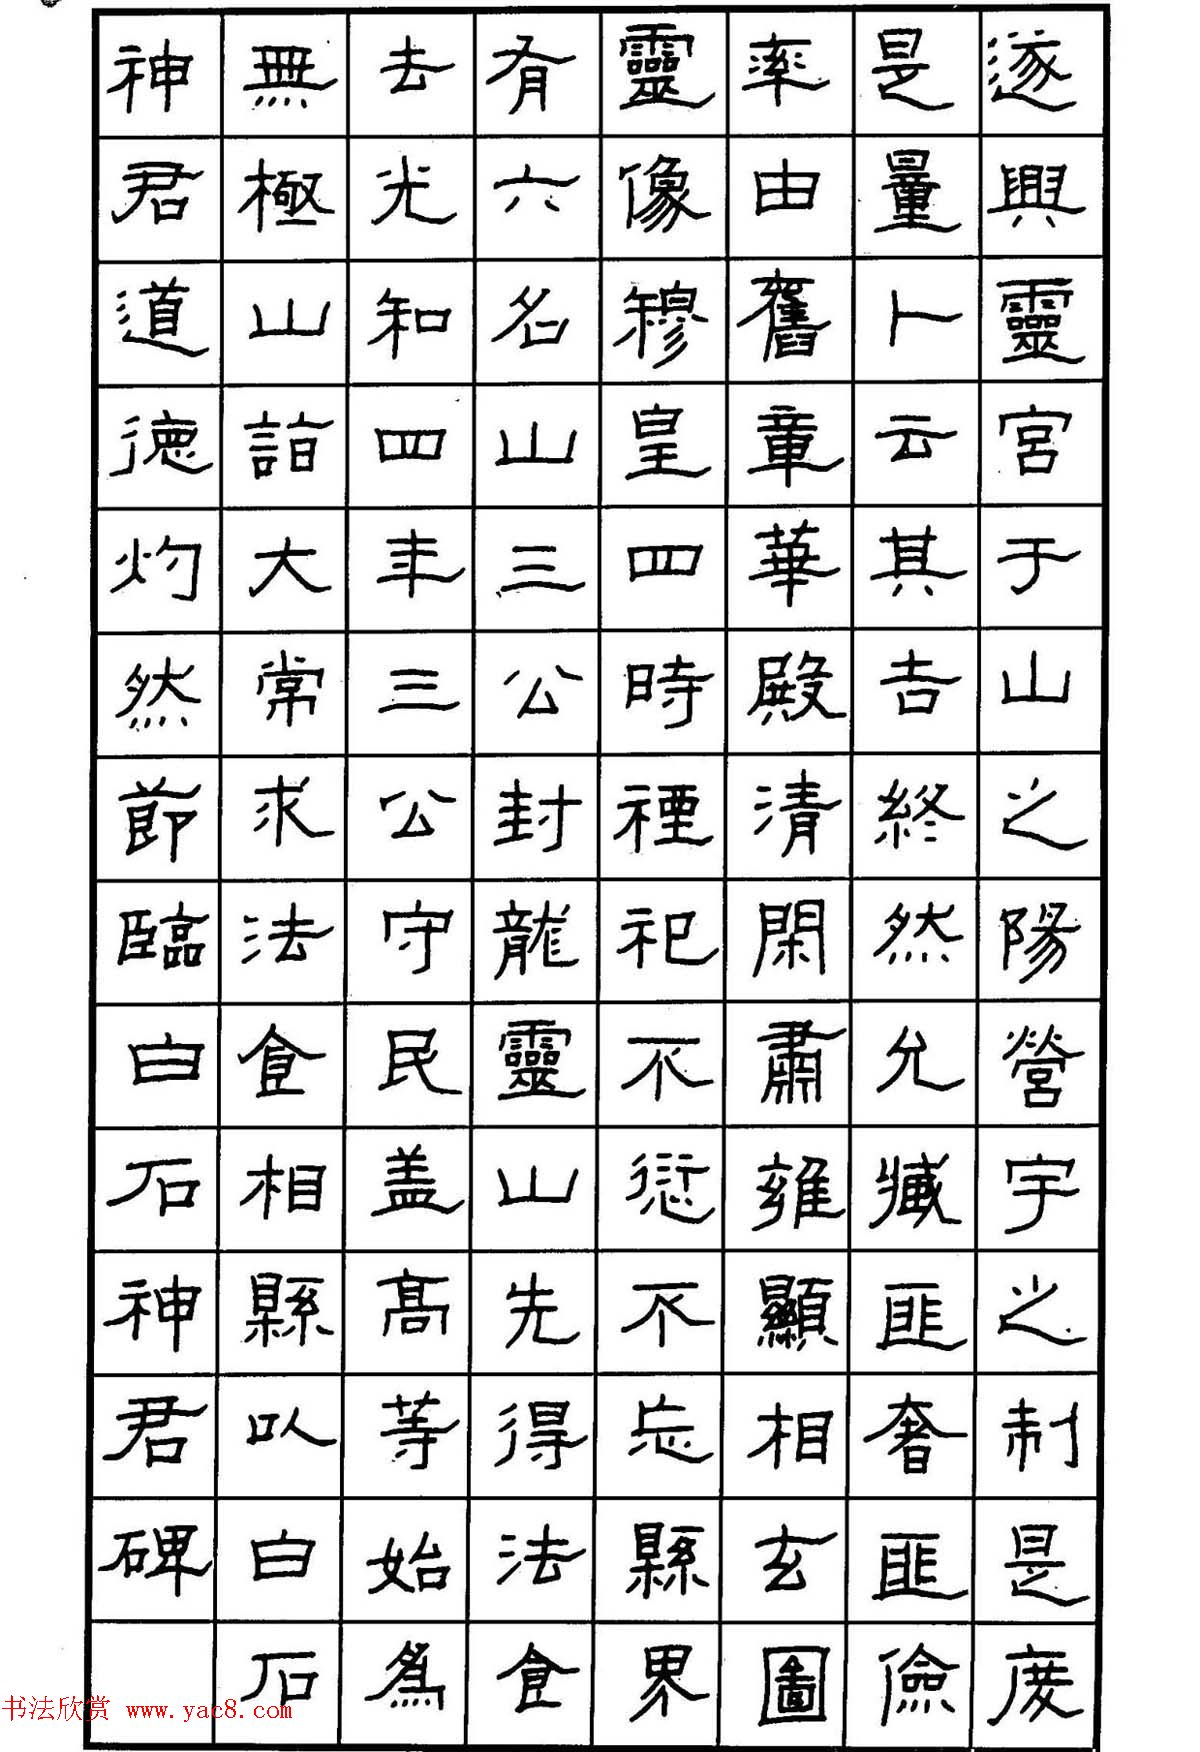 遂興靈宮于山之陽營宇之制是度
是量卜云其吉終然允臧匪奢匪儉
率由舊章華殿清閑肅雍顯相玄圖
靈像穆皇四時禋祀不愆不忘縣界
有六名山三公封龍靈山先得法食
去光和四年三公守民盖高等始為
無極山詣大常求法食相縣以白石
神君道德灼然節臨白石神君碑
书法欣赏 www.yac8.com